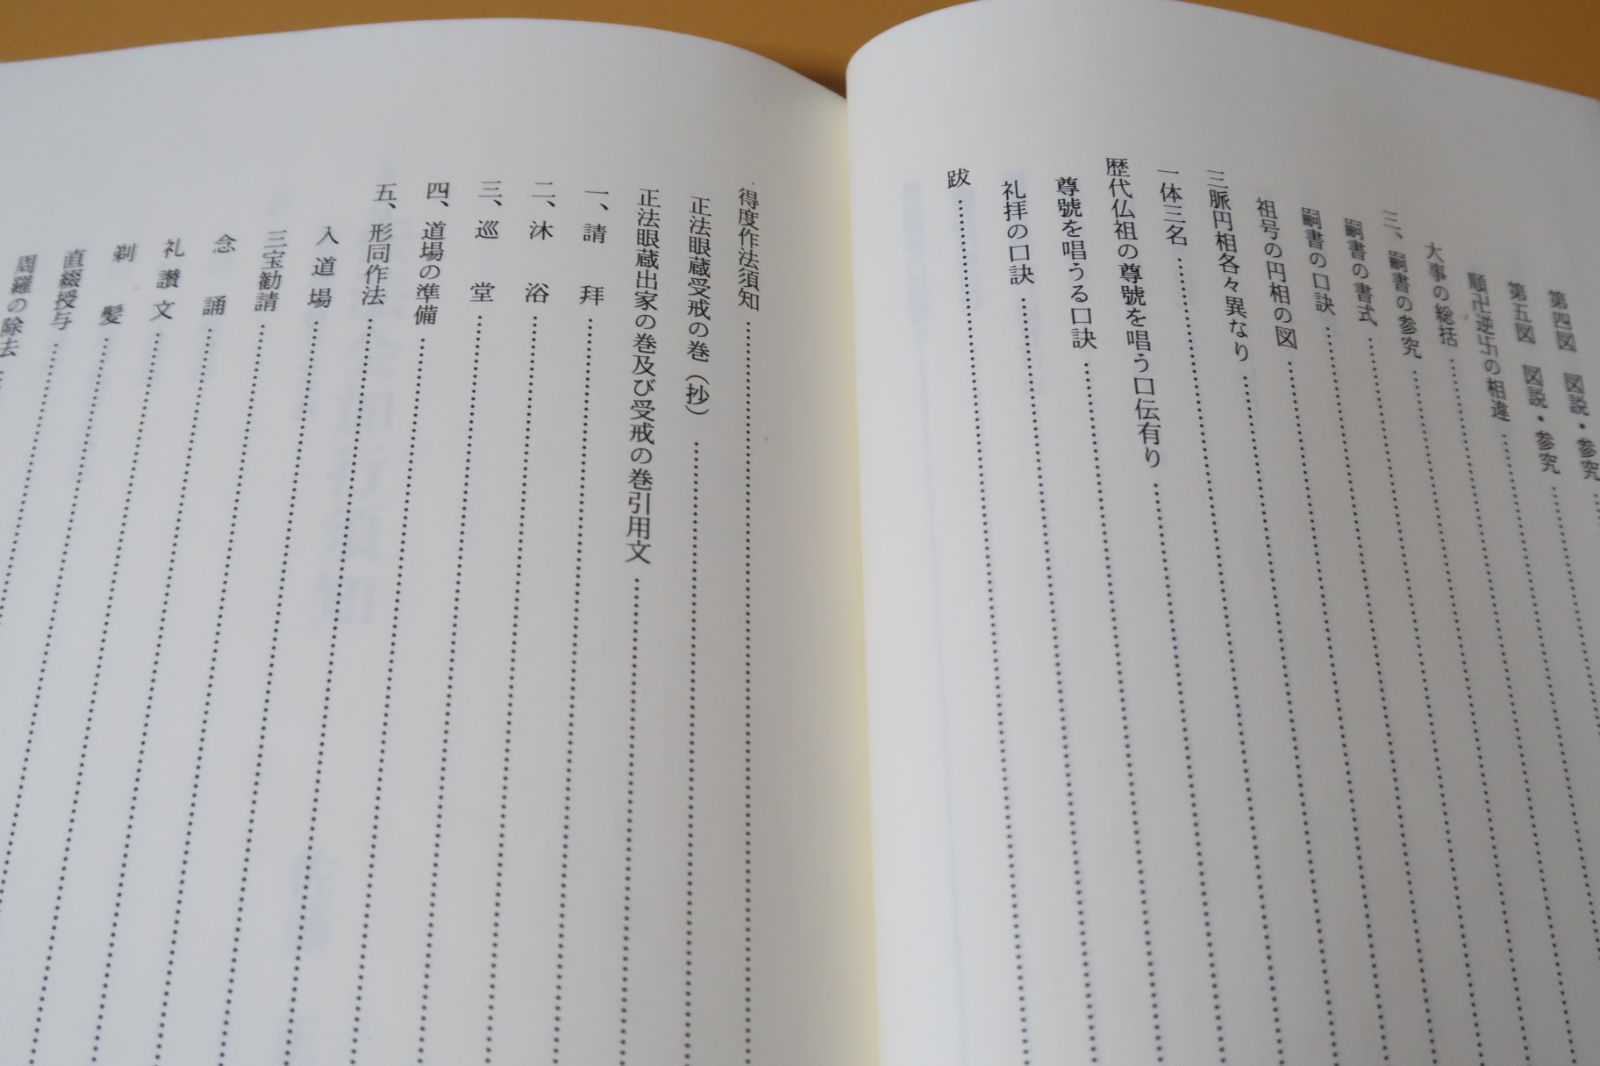 第四図　図説・参究
第五図　図説・参究
順卍逆卐の相違
大事の総括
三、嗣書の参究
嗣書の書式
嗣書の口訣
祖号の円相の図
三脈円相各々異なり
一体三名
歴代仏祖の尊號を唱う口伝有り
尊號を唱うる口訣
礼拝の口訣
跋
得度作法須知
正法眼蔵受戒の巻（抄）
正法眼蔵出家の巻及び受戒の巻引用文
一、請拝
二、沐浴
三、巡堂
四、道場の準備
五、形同作法
入道場
三宝勧請
念誦
礼讃文
剃髪
直綴授与
周羅の除去